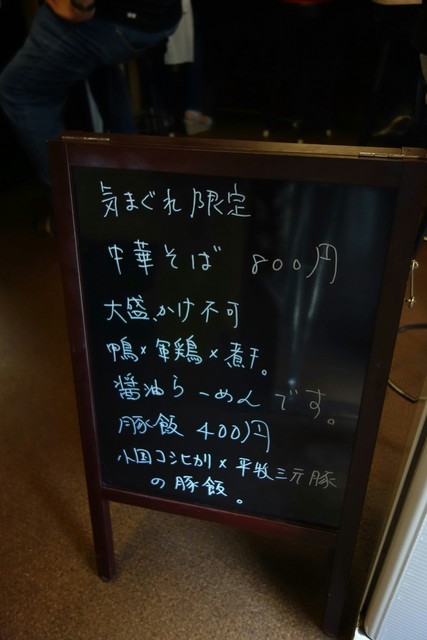 気まぐれ限定
中華そば 800円
大盛、かけ不可
鴨×軍鶏×煮干。
醤油らーめんです。
豚飯 400円
小国コシヒカリ×平牧三元豚
の豚飯。